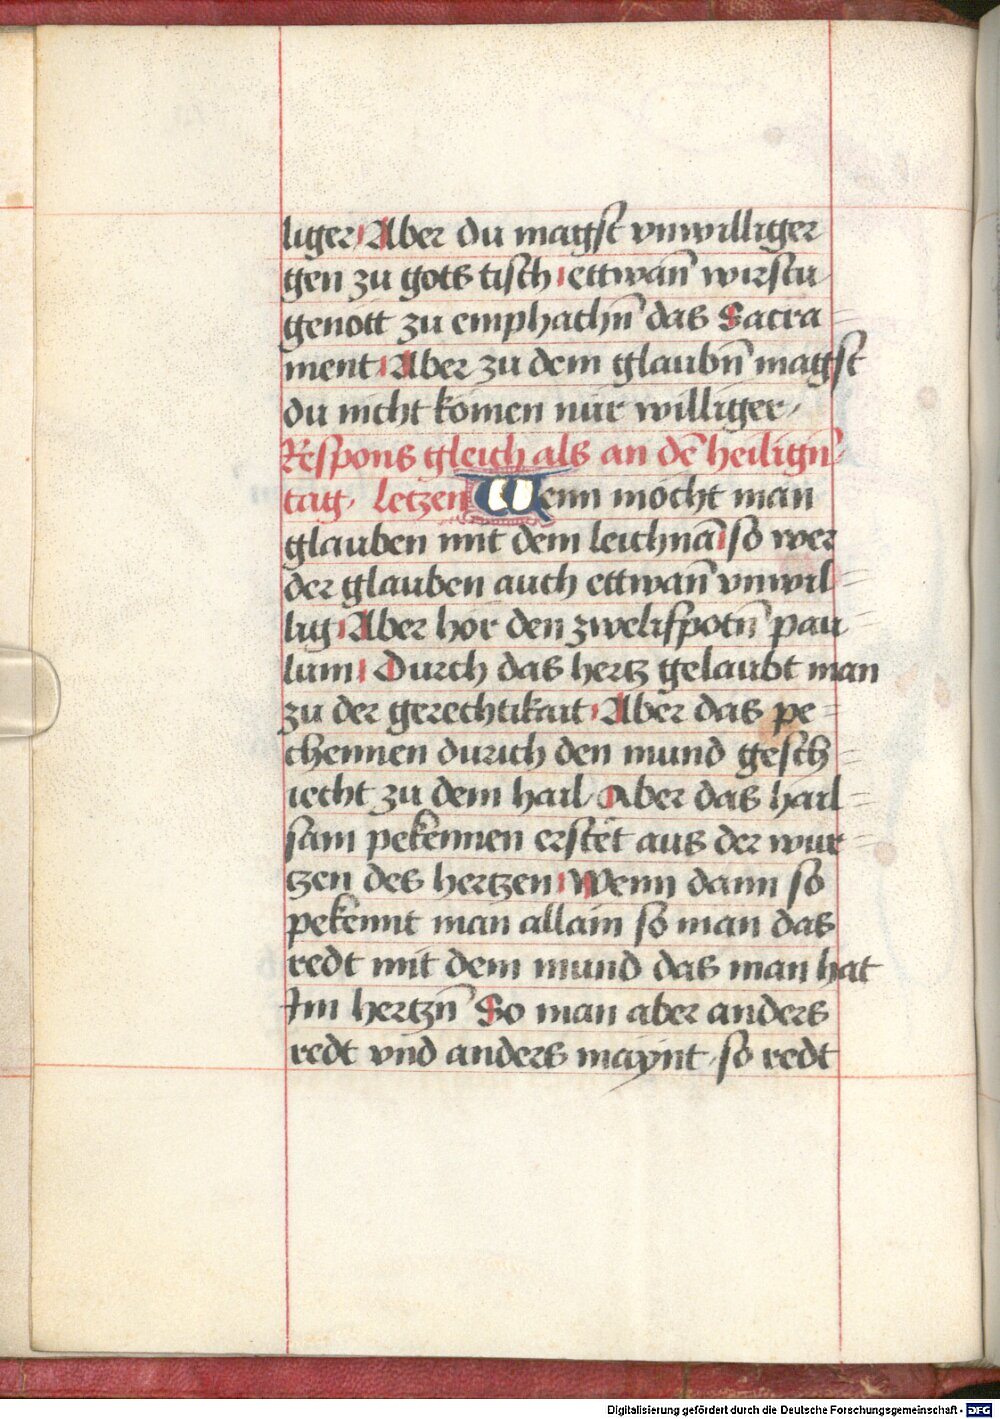 liger Aber du magst vnwilliger
gen zu gots tisch ettwan̄ wirstu
genott zu emphachn̄ das Sacra=
ment Aber zu dem glaubn̄ magst
du nicht komen nür williger
Respons gleich als an dē heilign̄
tag. Letzen Wenn mocht man
glauben mit dem leichnā so wer
der glauben auch ettwan̄ vnwil=
lig Aber hör den zwelifpotn̄ pau=
lum Durch das hertz gelaubt man
zu der gerechtikait Aber das pe=
chennen durich den mund gesch=
iecht zu dem hail Aber das hail=
sam pekennen erstet aus der wur=
tzen des hertzen Wenn dann so
pekennt man allain so man das
redt mit dem mund das man hat
Im hertzn̄ So man aber anders
redt vnd anders maynt so redt
Digitalisierung gefördert durch die Deutsche Forschungsgemeinschaft - DFG